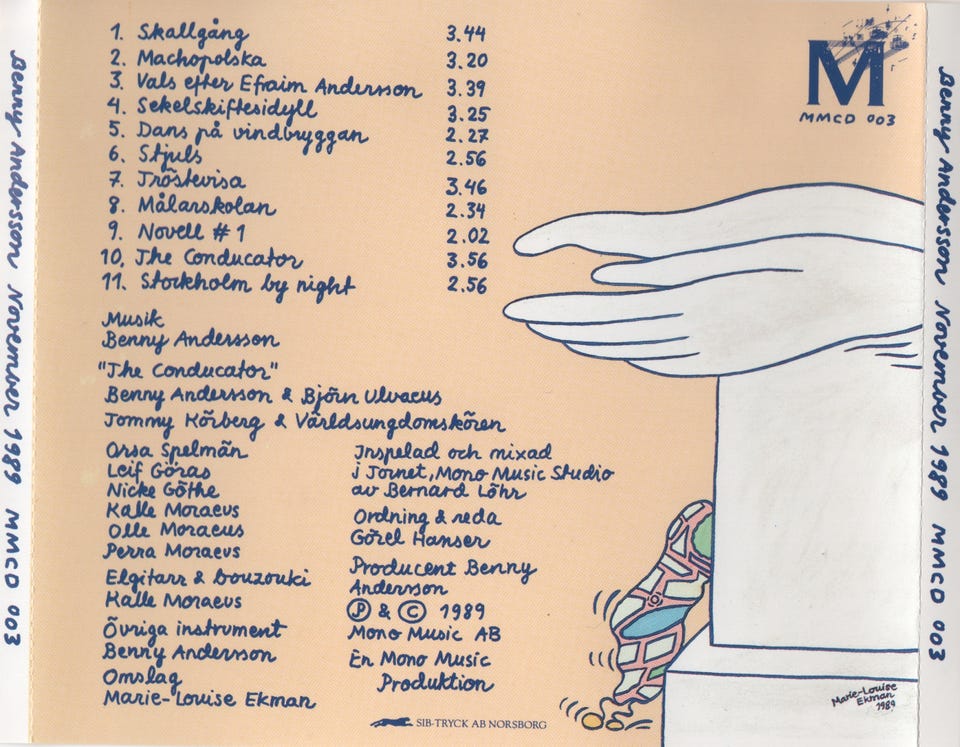 1. Skallgång 3.44
2. Machopolska 3.20
3. Vals efter Efraim Andersson 3.39
4. Sekelskiftesidyll 3.25
5. Dans på vindbryggan 2.27
6. Stjuls 2.56
7. Tröstevisa 3.46
8. Målarskolan 2.34
9. Novell #1 2.02
10. The Conducator 3.56
11. Stockholm by night 2.56
Musik
Benny Andersson
"The Conducator"
Benny Andersson & Björn Ulvaeus
Tommy Körberg & Världsungdomskören
Orsa Spelmän
Leif Göras
Nicke Göthe
Kalle Moraeus
Olle Moraeus
Perra Moraeus
Elgitarr & bouzouki
Kalle Moraeus
Övriga instrument
Benny Andersson
Omslag
Marie-Louise Ekman
Inspelad och mixad
i Tornet, Mono Music Studio
av Bernard Löhr
Ordning & reda
Görel Hanser
Producent Benny
Andersson
Ⓟ & © 1989
Mono Music AB
En Mono Music
Produktion
SIB-TRYCK AB NORSBORG
M
MMCD 003
Marie-Louise
Ekman
1989
Benny Andersson November 1989 MMCD 003
Benny Andersson November 1989 MMCD 003